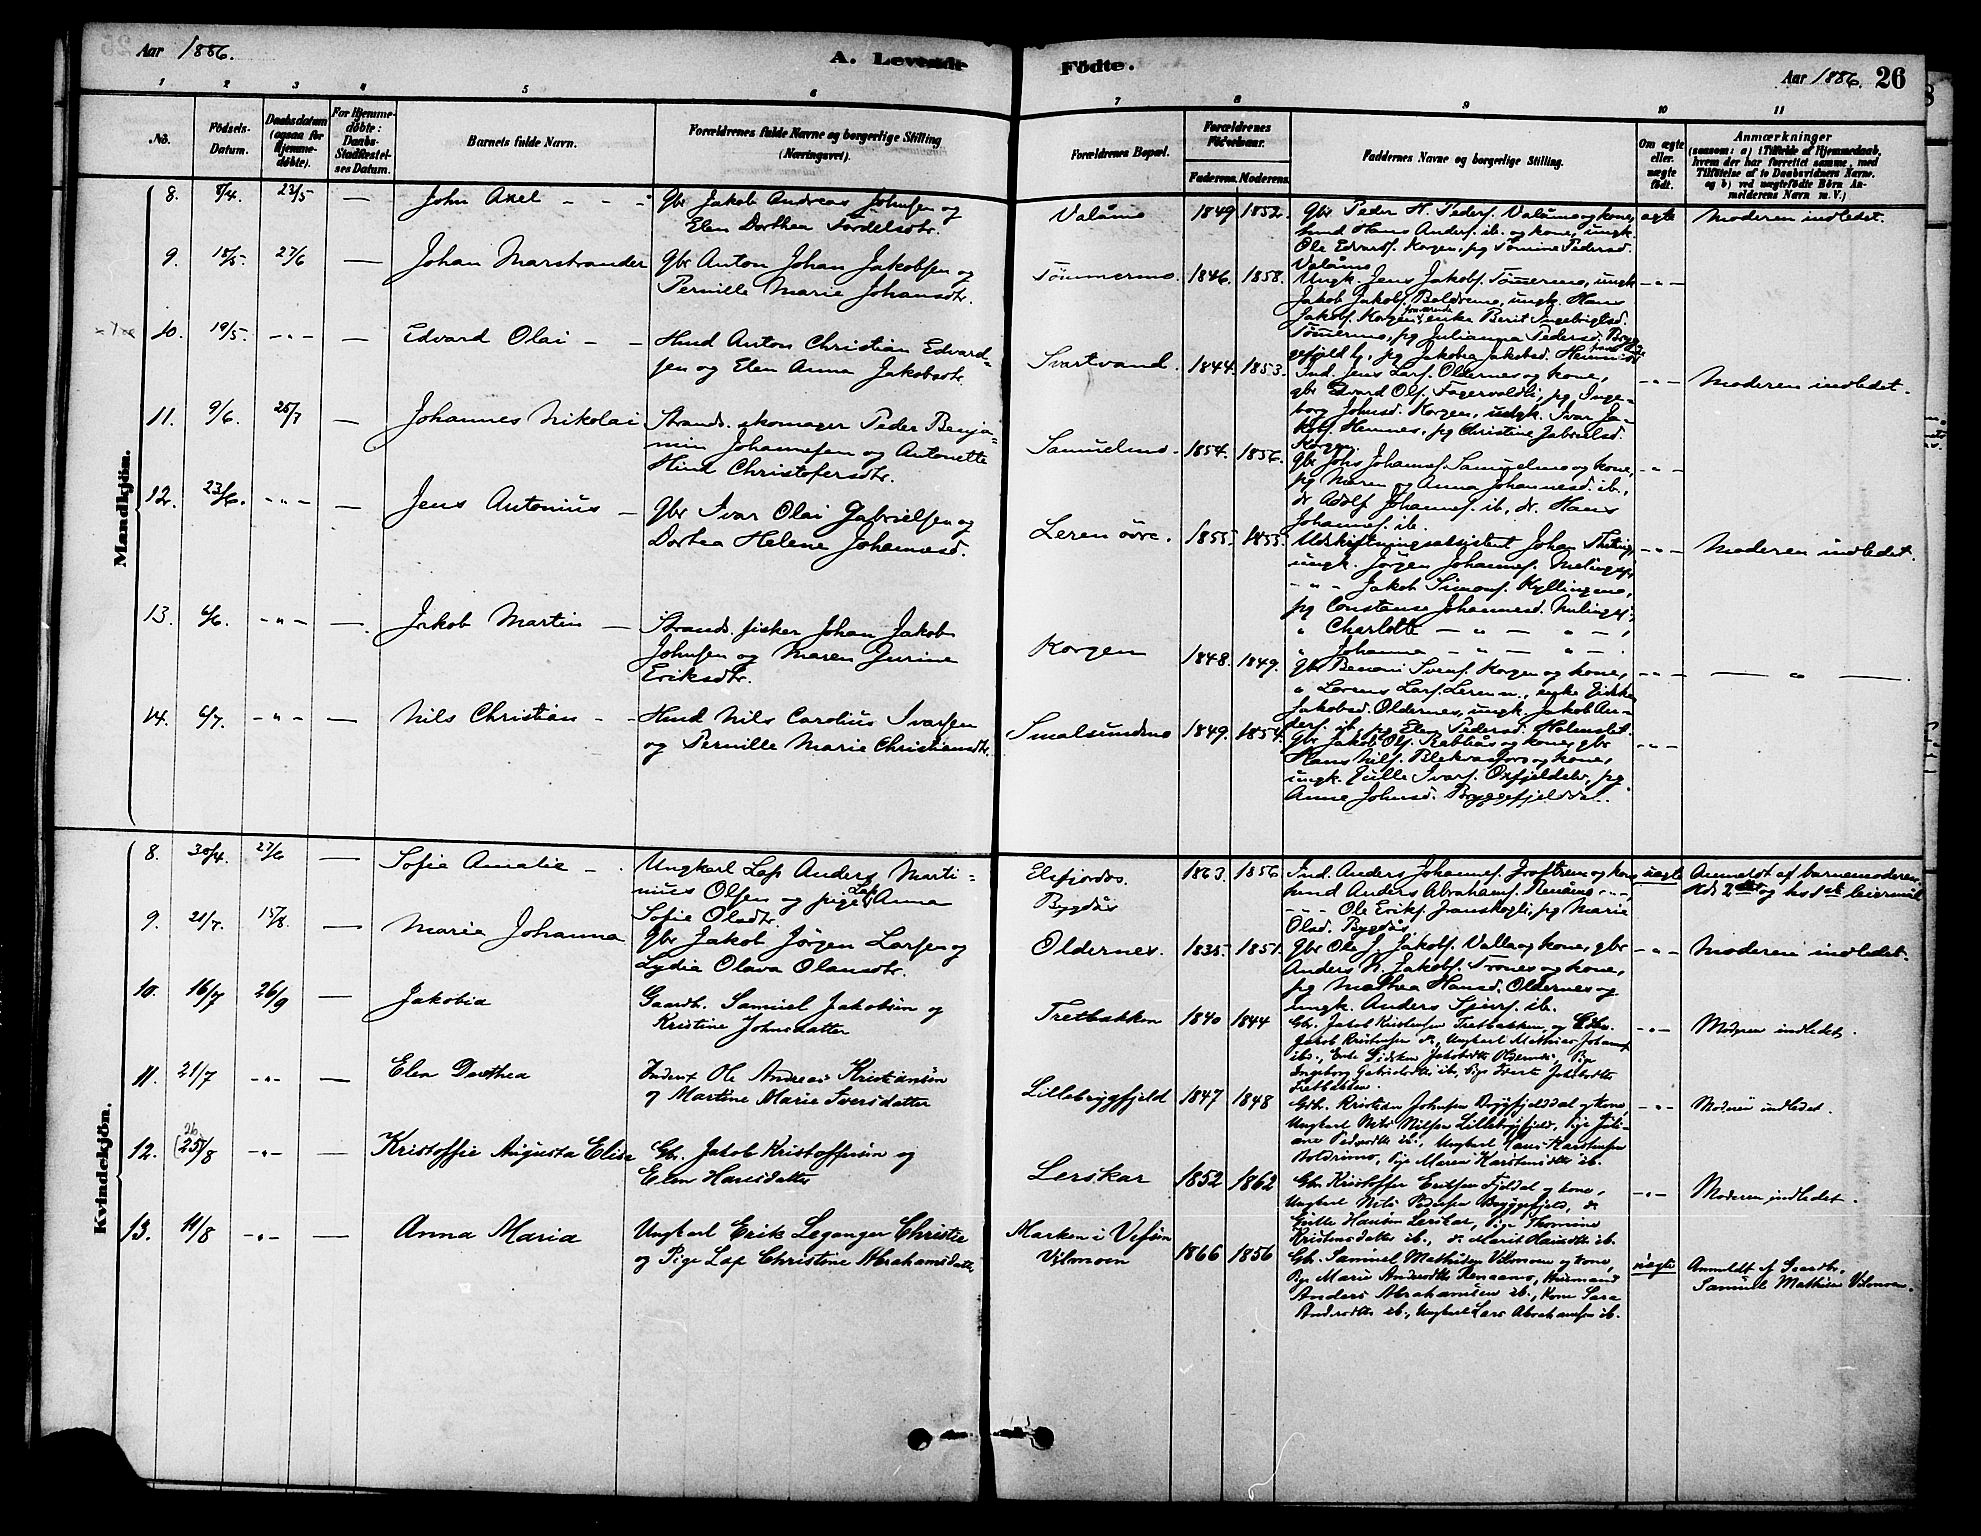 Aar 1886.
A. Levende Födte.
Aar 1886. 26
1 2 3 4 5 6 7 8 9 10 11
No.
Födsels-Datum.
Daabsdatum (ogsaa for Hjemme-døbte).
For Hjemme-døbte: Daabs-Stadfæstel-ses Datum.
Barnets fulde Navn.
Forældrenes fulde Navne og borgerlige Stilling (Næringsvei).
Forældrenes Bopæl.
Forældrenes Födselsaar.
Faderens. Moderens.
Faddernes Navne og borgerlige Stilling.
Om ægte eller uægte født.
Anmærkninger
(saasom: a) i Tilfælde af Hjemmedaab,
hvem der har forrettet samme, med
Tilföielse af to Daabsvidners Navne.
og b) ved uægtefödte Börn An-
melderens Navn m. V.)
Mandkjön.
8. 8/4. 23/5 — John Axel - - -
Gbr Jakob Andreas Johnsen og
Elen Dorthea Tordelsdtr.
Valåmo 1849 1852.
Gbr Peder H. Peders. Valåmo og kone,
husd Hans Anders. ib. og kone, ungk.
Ole Edvards. Korgen, pg Tomine Pedersd.
Valåmo
ægte Moderen indledet.
9. 18/5. 27/6 — Johan Marstrander
Gbr Anton Johan Jakobsen og
Pernille Marie Johansdtr.
Tömmermo. 1846. 1858.
Ungk. Jens Jakobs. Tömermo, ungk
Jakob Jakobs. Boldremo, ungk. Hans
Jakobs. Korgen, enke Berit Ingebrigtsd.
Tömermo, pg Julianna Pedersd. Bryg-
gefjeld l., pg Jakobea Jakobsd. Hemnes
-"-
10. 19/5. -"- — Edvard Olai - -
Husd Anton Christian Edvard-
sen og Elen Anna Jakobsdtr.
Svartvand. 1844. 1853.
Ind. Jens Lars. Oldernes og kone,
gbr Edvard Ols. Fagervoldli, pg Inge-
borg Johnsd. Korgen, ungk. Ivar Ja-
kobs. Hemnes, pg Christine Gabrielsd.
Korgen.
-"- Moderen indledet.
11. 9/6. 25/7 — Johannes Nikolai
Strands. skomager Peder Benja-
min Johannesen og Antonette
Hind Christofersdtr.
Samuelmo. 1854. 1856.
Gbr Johs Johannes. Samuelmo og kone,
pg Maren og Anna Johannesd. ib.,
dr. Adolf Johannes. ib., dr. Hans
Johannes. ib.
-"-
12. 23/6. -"- — Jens Antonius -
Gbr Ivar Olai Gabrielsen og
Dorthea Helene Johannesd.
Leren övre. 1855. 1855.
Udskiftningsassistent Johan
ungk. Jörgen Johannes.
-"- Jakob Simons. Kyllingmo,
pg Constanse Johannesd.
" Charlotte - " - " - ,
" Johanna - " - " - .
-"- Moderen indledet.
13. 6/6. -"- — Jakob Martin -
Strands. fisker Johan Jakob
Johnsen og Maren Jurine
Eriksdtr.
Korgen 1848. 1849.
Gbr Benoni Ivers. Korgen og kone,
" Lorens Lars. Leren n., enke
Jakobsd. Oldernes, ungk. Jakob An-
ders. ib. pg Elen Pedersd. Holmslet.
-"- — " —
14. 6/7. -"- — Nils Christian - -
Husd Nils Carolius Ivarsen
og Pernille Marie Christiansdtr.
Smalsundmo 1849. 1854.
Gbr Jakob Ols. Rabliås og kone, gbr
Hans Nils. Blekvasfors og kone,
ungk. Gulle Ivars. Oxfjeldelv, pg
Anne Johnsd. Bryggefjelddal.
-"-
Kvindekjön.
8. 30/4. 27/6 — Sofie Amalie - .
Ungkarl Lap Anders Marti-
nius Olsen og pige Lap Anna
Sofie Olsdtr.
Elsfjorden.
Bygdås
1863. 1856
Ind. Anders Johannes. og kone
husd Anders Abrahams. Renåmo - " -,
-"- Ole Eriks. Granskogli, pg Marie
Olsd. Bygdås
uægte Anmeldt af barnemoderen.
Kds 2det og hs 1ste leiermål
9. 21/7. 15/8. — Maria Johanna
Gbr Jakob Jörgen Larsen og
Lydia Olava Olausdtr.
Oldernes. 1835. 1851.
Gbr Ole J. Jakobs. Valla og kone, gbr
Anders K. Jakobs. Trones og kone,
pg Mathea Hansd. Oldernes og
ungk. Anders Sjurs. ib.
-"- Moderen indledet.
10. 16/7 26/9 — Jakobia
Gaardbr. Samuel Jakobsen og
Kristine Johnsdatter
Tretbakken 1840 1844
Gbr. Jakob Kristensen Tretbakken, og
Jakob Kristensen do, Ungkarl Mathias Johans
ibd., Enke Sidsken Jakobsdtr Oldernes, Pige
Ingeborg Gabrielsdtr ib., Pige Jakobsdtr
Tretbakken.
-"- Moderen indledet.
11. 21/7 -"- — Elen Dorthea
Inderst Ole Andreas Kristiansön
og Martine Marie Iversdatter
Lillebrygfjeld 1847 1848
Gbr. Kristian Johnsen Brygfjelddal og kone,
Ungkarl Nils Nilsen Lillebrygfjeld, Pige Juli-
ane Pedersdtr ib., Ungkarl Hans Karstensen
Boldrimo, Pige Maren Karstensdtr ib.
-"- Moderen indledet.
12. 26 (25/8 -"- — Kristoffie Augusta Elise
Gbr. Jakob Kristoffersön og
Elen Hansdatter
Lerskar 1852 1862
Gbr Kristoffer Eriksen Fjeldal og kone,
Ungkarl Nils Pedersen Bryggefjeld, do
Gulle Hansön Lerskar, Pige Thomine
Kristensdatter ib., do Marit Hansdtr ib.
-"- Moderen indledet.
13. 19/8 -"- — Anna Maria
Ungkarl Erik Leganger Christie
og Pige Lap Christine Abrahamsdatter
Marken i Vefsen
Vilmoen
1866 1856
Gbr. Samuel Mathisen Vilmoen og kone,
Pige Marie Andersdtr Renaamo, Husmand
Anders Abrahamsen ib., Kone Sara
Andersdtr ib., Ungkarl Lars Abrahamsen ib.
uægte Anmeldt af Gaardbr.
Samuel Mathisen Vilmoen.